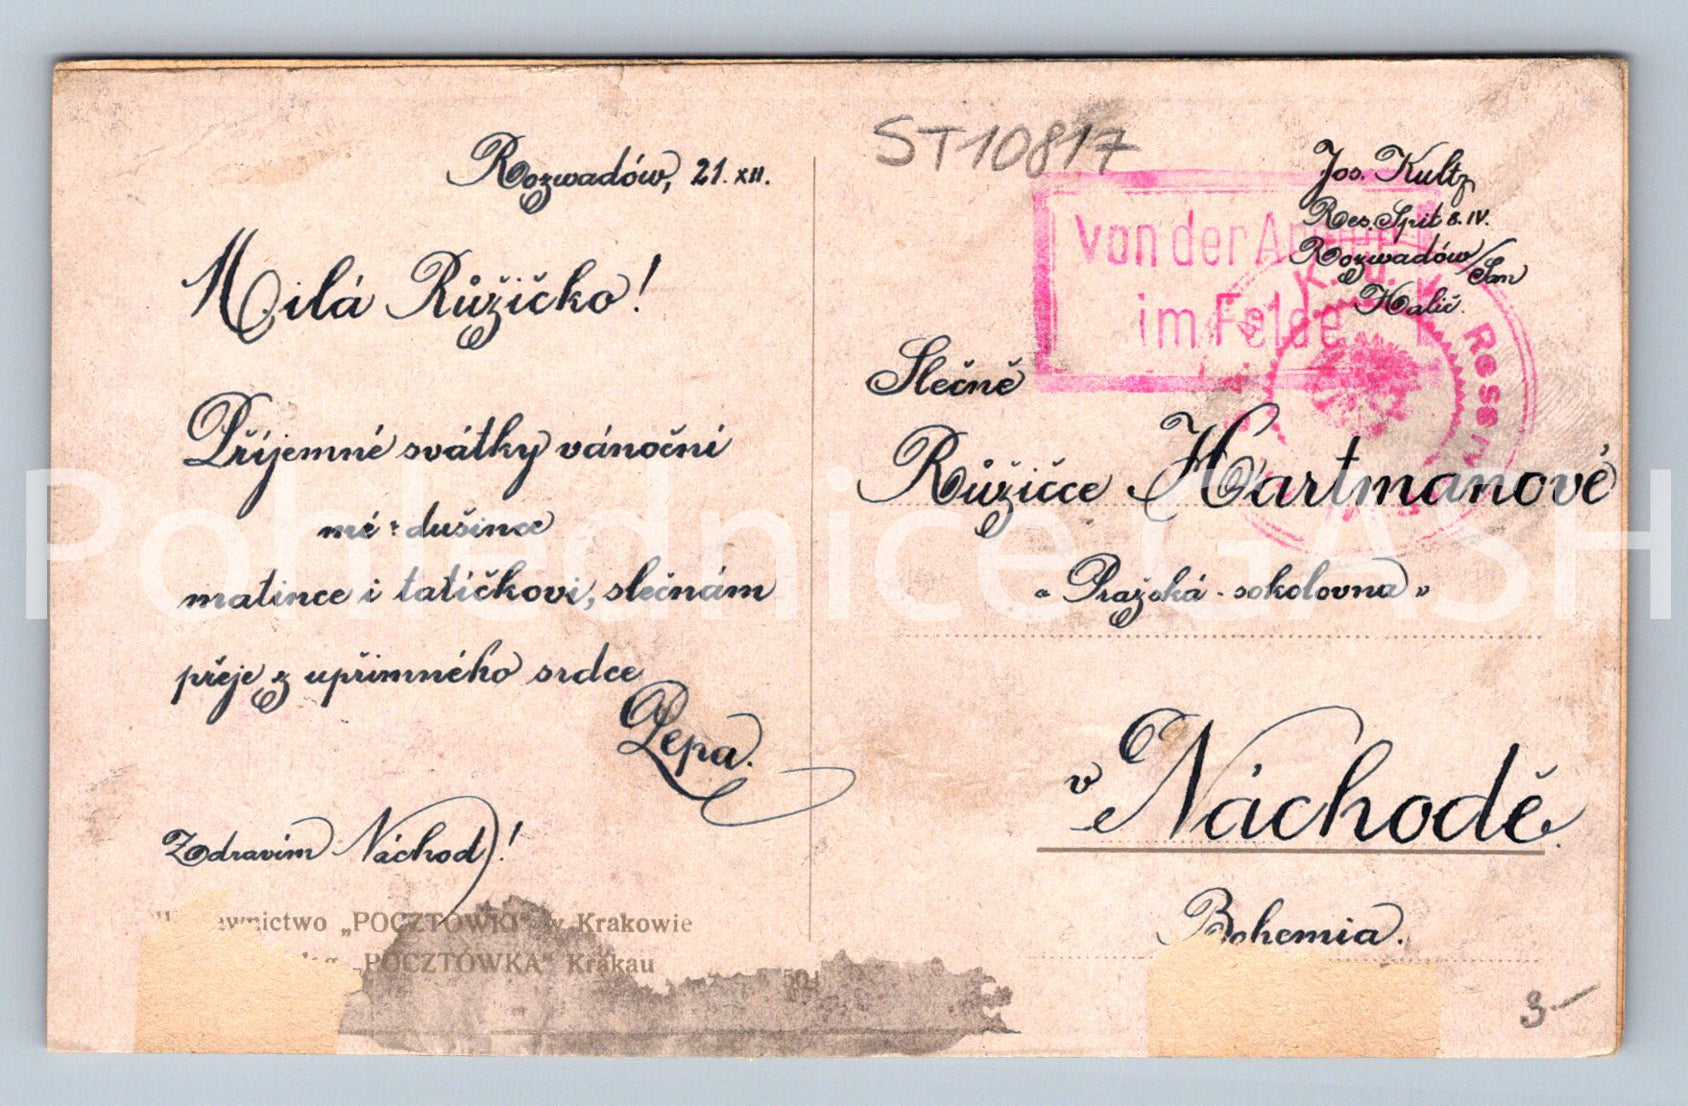 Rozwadów, 21. XII.
Milá Růžičko!
Příjemné svátky vánoční
mé dušince
matince i tatíčkovi, slečnám
přeje z upřimného srdce
Pepa.
Zdravím Náchod!
"POCZTÓWKI" w Krakowie
„POCZTÓWKA" Krakau
504
ST10817
von der Armee
im Felde
K. u. K.
Reserv
Jos. Kultz
Res. Spit. B. IV.
Rozwadów/San
Halič.
Slečně
Růžičce Hartmanové
„Pražská - sokolovna"
v Náchodě.
Bohemia.
3.-
Pohlednice GASH